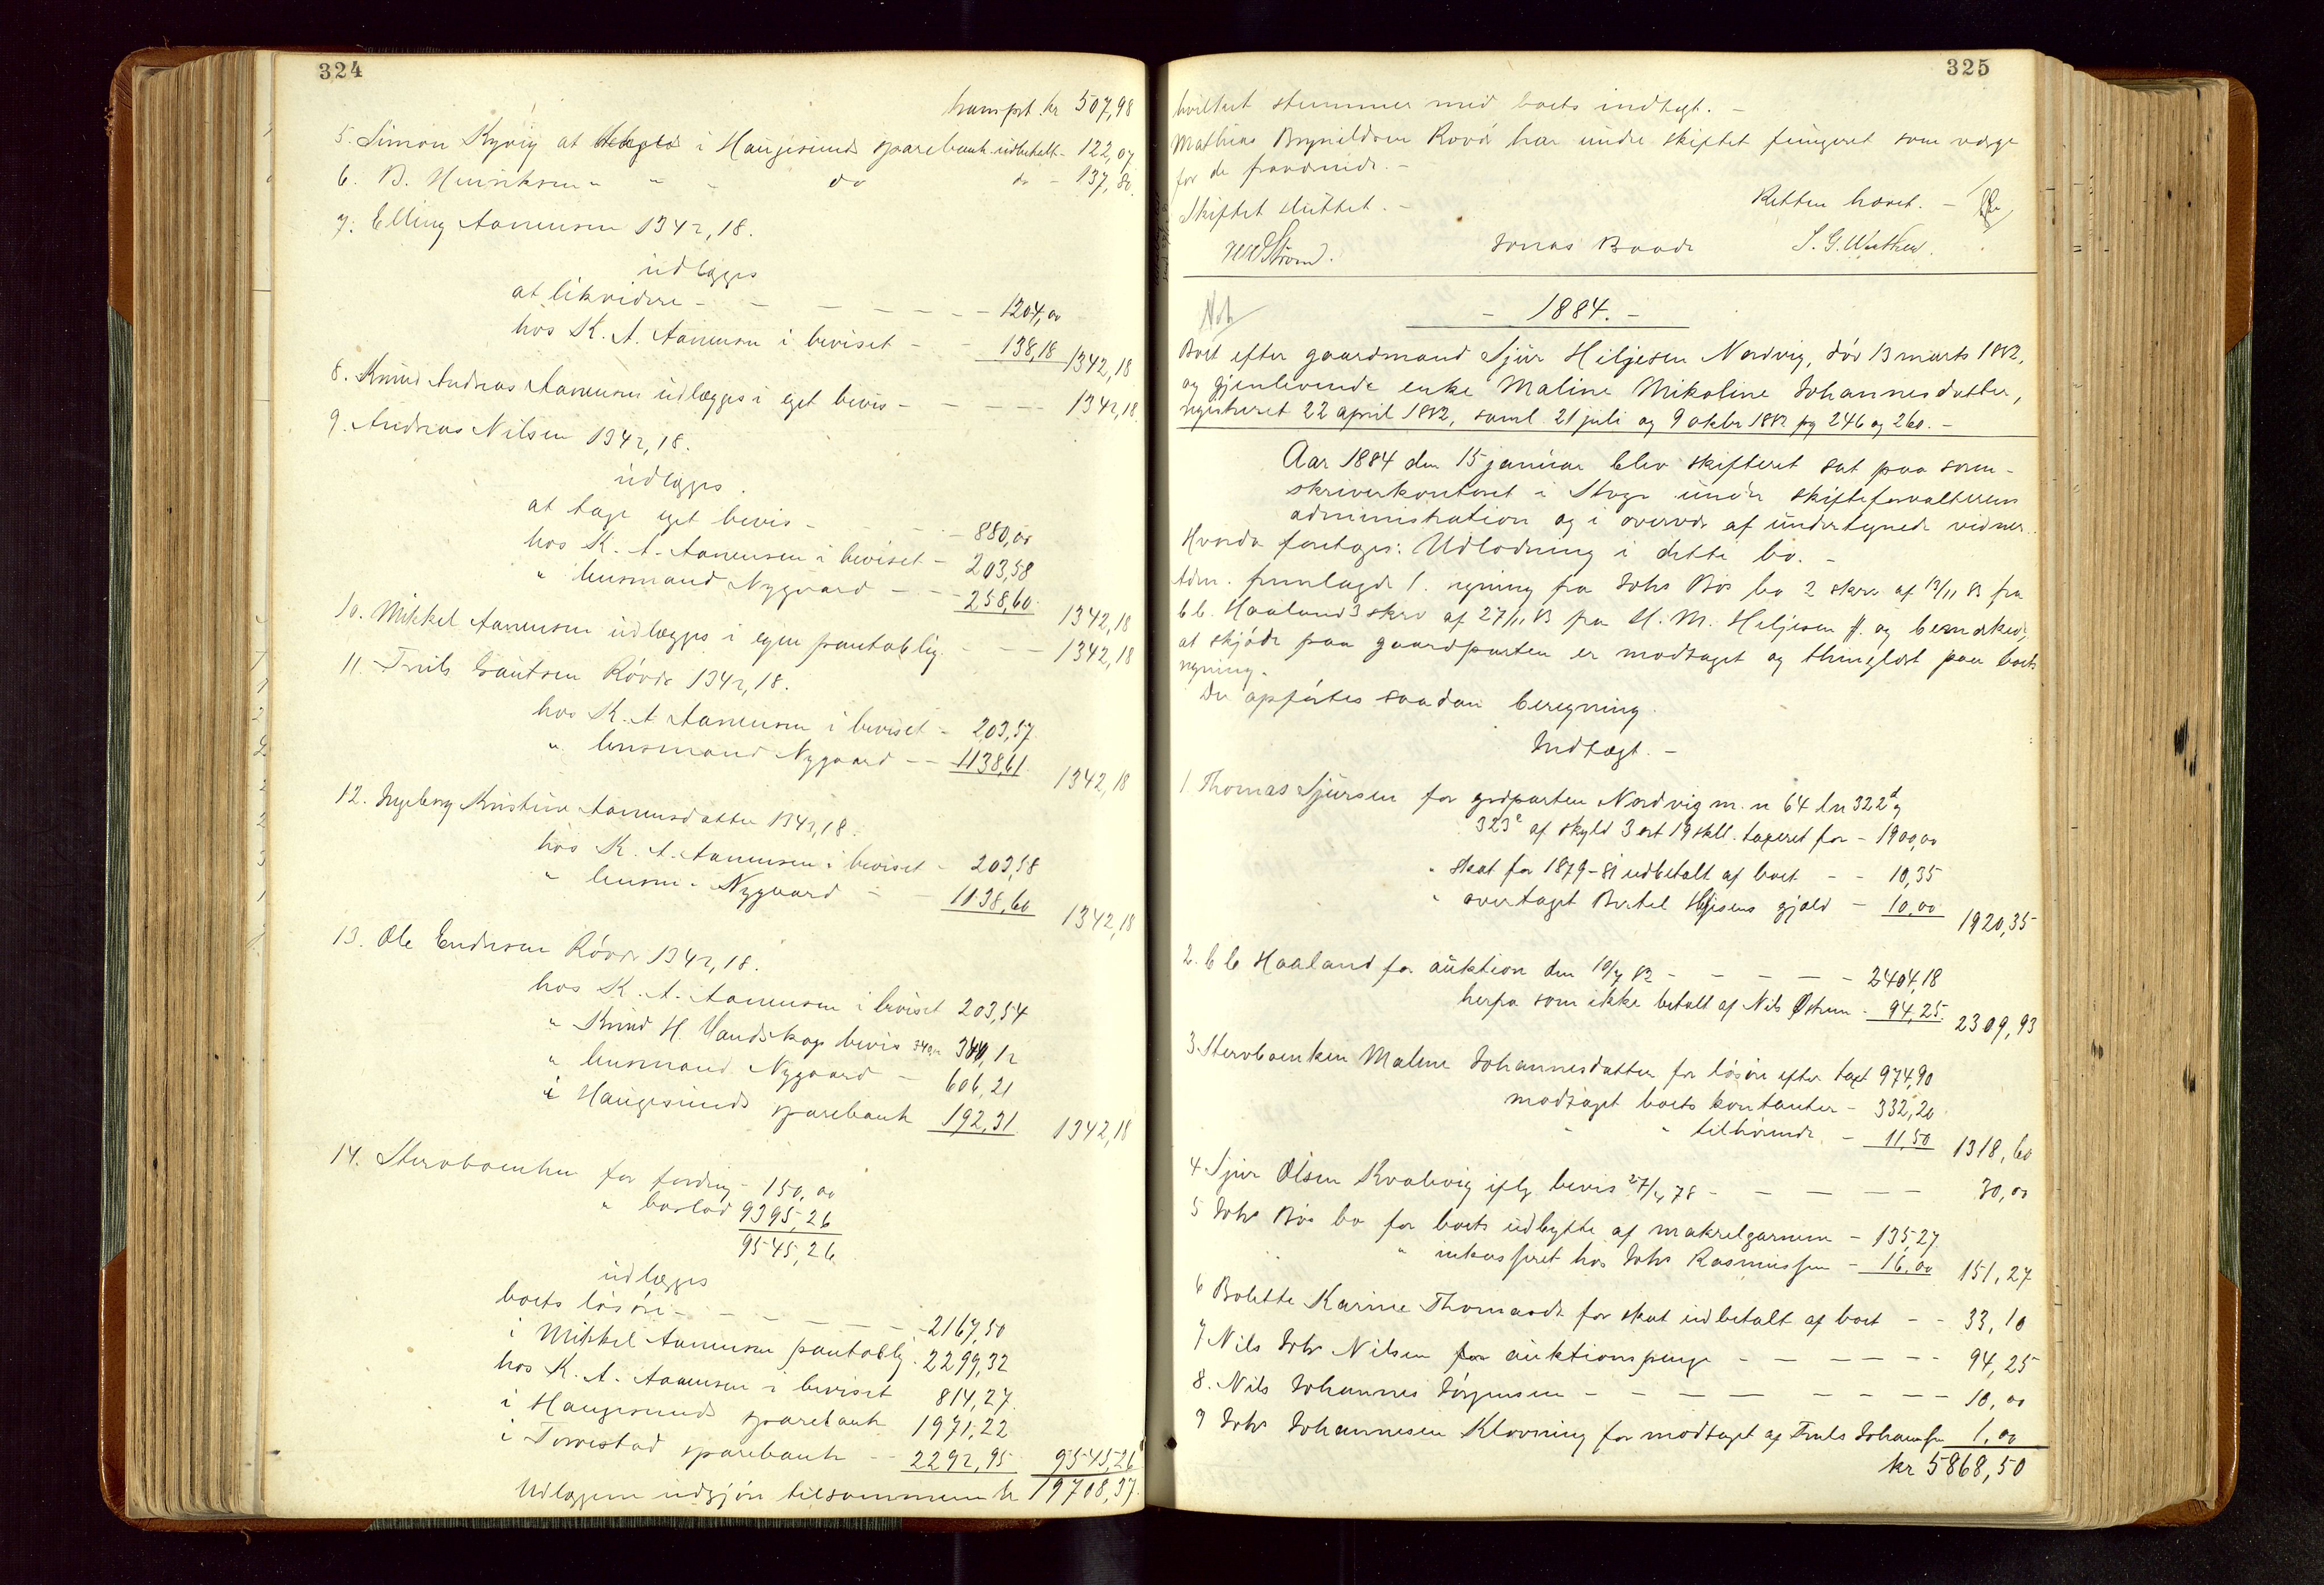 324
transprt. kr 507,98
5. Simon Kyvig at i Haugesunds sparebank udbetalt - 122,07
6. B. Henriksen " " " do do - 137,80.
7. Elling Aanensen 1342,18.
udlægges
at likvidere - - - - - - 1204,00
hos K. A. Aanensen i beviset - - 138,18 1342,18
8. Knud Andreas Aanensen udlægges i eget bevis - - - - - 1342,18.
9. Andreas Nilsen 1342,18.
udlægges.
at tage eget bevis - - - - 880,00
hos K. A. Aanensen i beviset - 203,58
" lensmand Nygaard - - - 258,60. 1342,18
10. Mikkel Aanensen udlægges i egen pantoblig. - - - 1342,18
11. Truls Gautsen Røvde 1342,18.
hos K. A Aanensen i beviset - 203,57.
" lensmand Nygaard - - 1138,61. 1342,18
12. Ingeborg Kristine Aanensdatter 1342,18.
hos K. A. Aanensen i beviset - 203,58
" lensm. Nygaard - - 1138,60 1342,18
13. Ole Endresen Røvde 1342,18.
hos K. A. Aanensen i beviset 203,54
" Knud H. Vandskogs bevis 340,12
" lensmand Nygaard - 606,21
i Haugesunds sparebank 192,31 1342,18
14. Stervboenken for fordring - 150,00
" boslod 9395,26
9545,26
udlægges
boets løsøre - - - - - - 2167,50
i Mikkel Aanensens pantoblig. 2299,32
hos K. A. Aanensen i beviset 814,27.
i Haugesunds sparebank 1971,22
i Torvestad sparebank - - 2292,95 9545,26
Udlæggene udgjør tilsammen kr 19708,37.
325
hvilket stemmer med boets indtægt. -
Mathias Brynildsen Røvde har under skiftet fungeret som værge
for de fraværende. -
Skiftet sluttet. - Retten hævet. -
Strøm. Jonas Baade S. G. Wathen.
Not
- 1884. -
Boet efter gaardmand Sjur Heljesen Nordvig, død 13 marts 1882,
og gjenlevende enke Maline Mikoline Johannesdatter,
registreret 22 april 1882, saml 21 juli og 9 oktbr 1882 pg 246 og 260. -
Aar 1884 den 15 januar blev skifteret sat paa soren-
skriverkontoret i Stege under skifteforvalterens
administration og i overvær af undertegnede vidner.
Hvorda foretoges: Udlodning i dette bo. -
Adm. fremlagde 1. regning fra Johs Bøe bo 2 skriv af 12/11 83 fra
C C. Haaland 3 skriv af 27/11 83 fra H. M. Heljesen ff. og bemærkede,
at skjøde paa gaardparten er modtaget og thinglæst paa boets
regning.
Der opførtes saadan beregning.
Indtægt. -
1. Thomas Sjursen for grdparten Nordvig m. n 64 ln 322d og
323e af skyld 3 ort 19 skll. taxeret for - 1900,00
" skat for 1879-81 udbetalt af boet - - 10,35
" overtaget Bertel Heljesens gjæld - 10,00 1920,35
2. C C Haaland for auktion den 10/7 82 - - - - - 2404,18
herfra som ikke betalt af Nils Østrem - 94,25. 2309,93
3. Stervboenken Maline Johannesdatter for løsøre efter taxt 974,90
modtaget boets kontanter - 332,20
" " tilhørende - 11,50 1318,60
4. Sjur Olsen Kvalevig iflg bevis 27/4 78 - - - - - 30,00
5 Johs Bøe bo for boets udbytte af makrelgarnene - 135,27.
" inkasseret hos Johs Rasmussen - 16,00 151,27
6 Bolette Karine Thomasdr for skat udbetalt af boet - - 33,10
7 Nils Johs Nilsen for auktionspenge - - - - - - 94,25
8. Nils Johannes Jørgensen - - - - - - - - 10,00
9 Johs Johannesen Klovning for modtaget af Truls Johansen 1,00
kr 5868,50